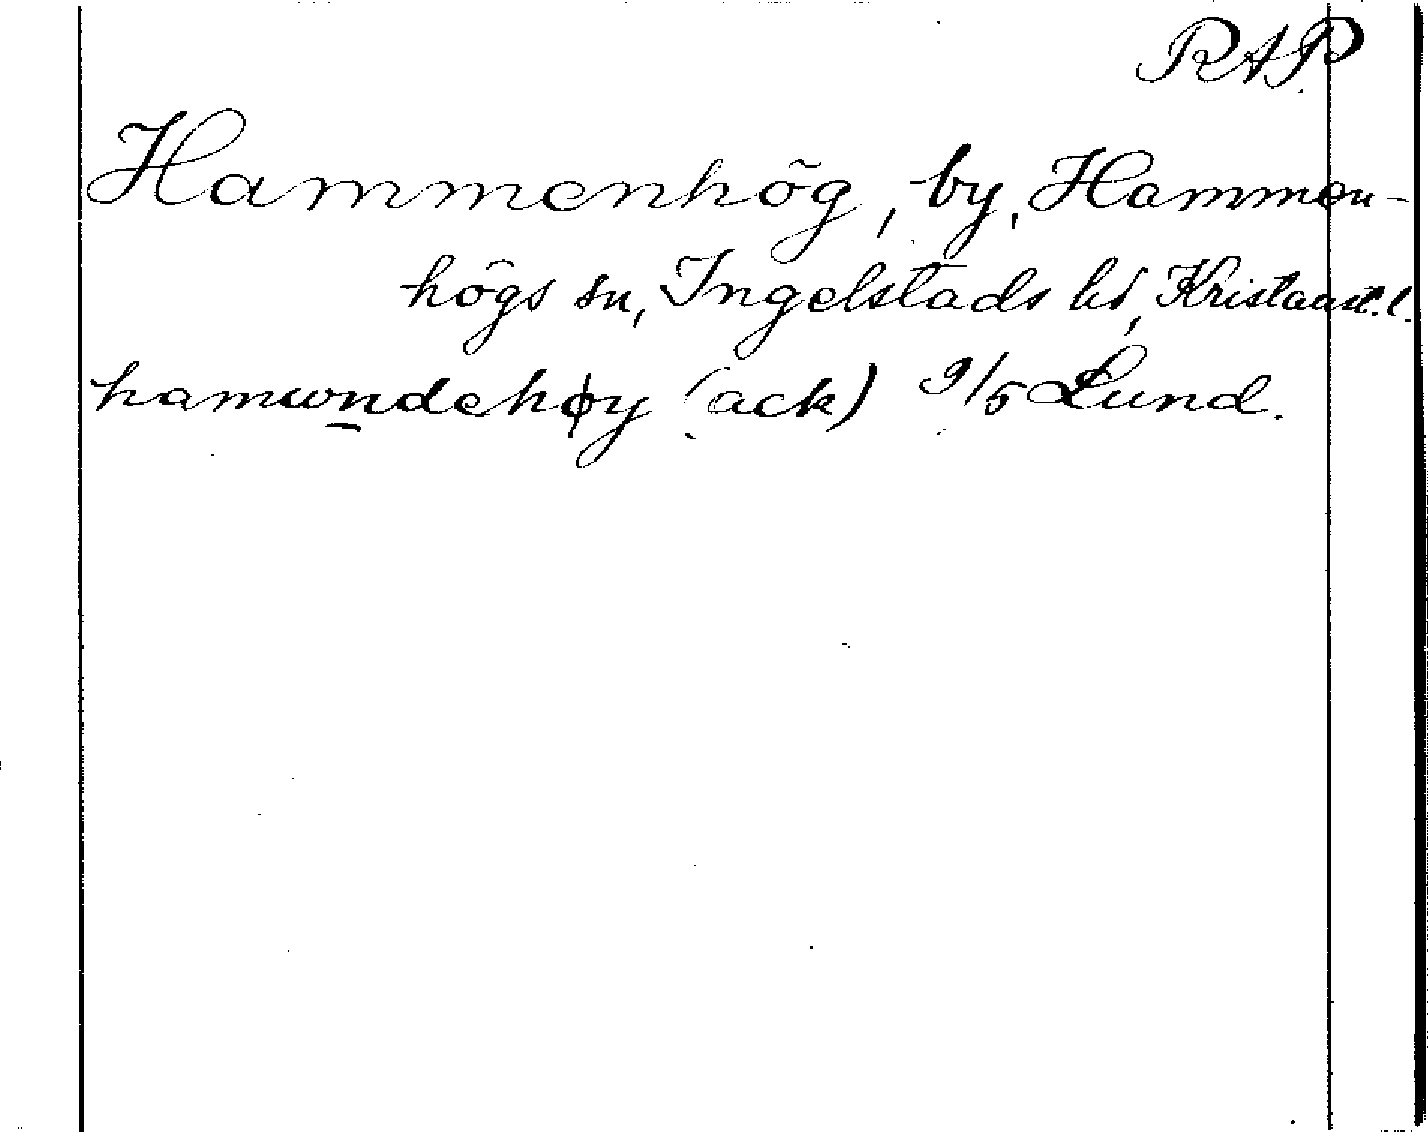 RAP.
Hammenhög, by, Hammen-
högs sn, Ingelstads hd, Kristianst. l.
hamwndehøy (ack) 9/5 Lund.